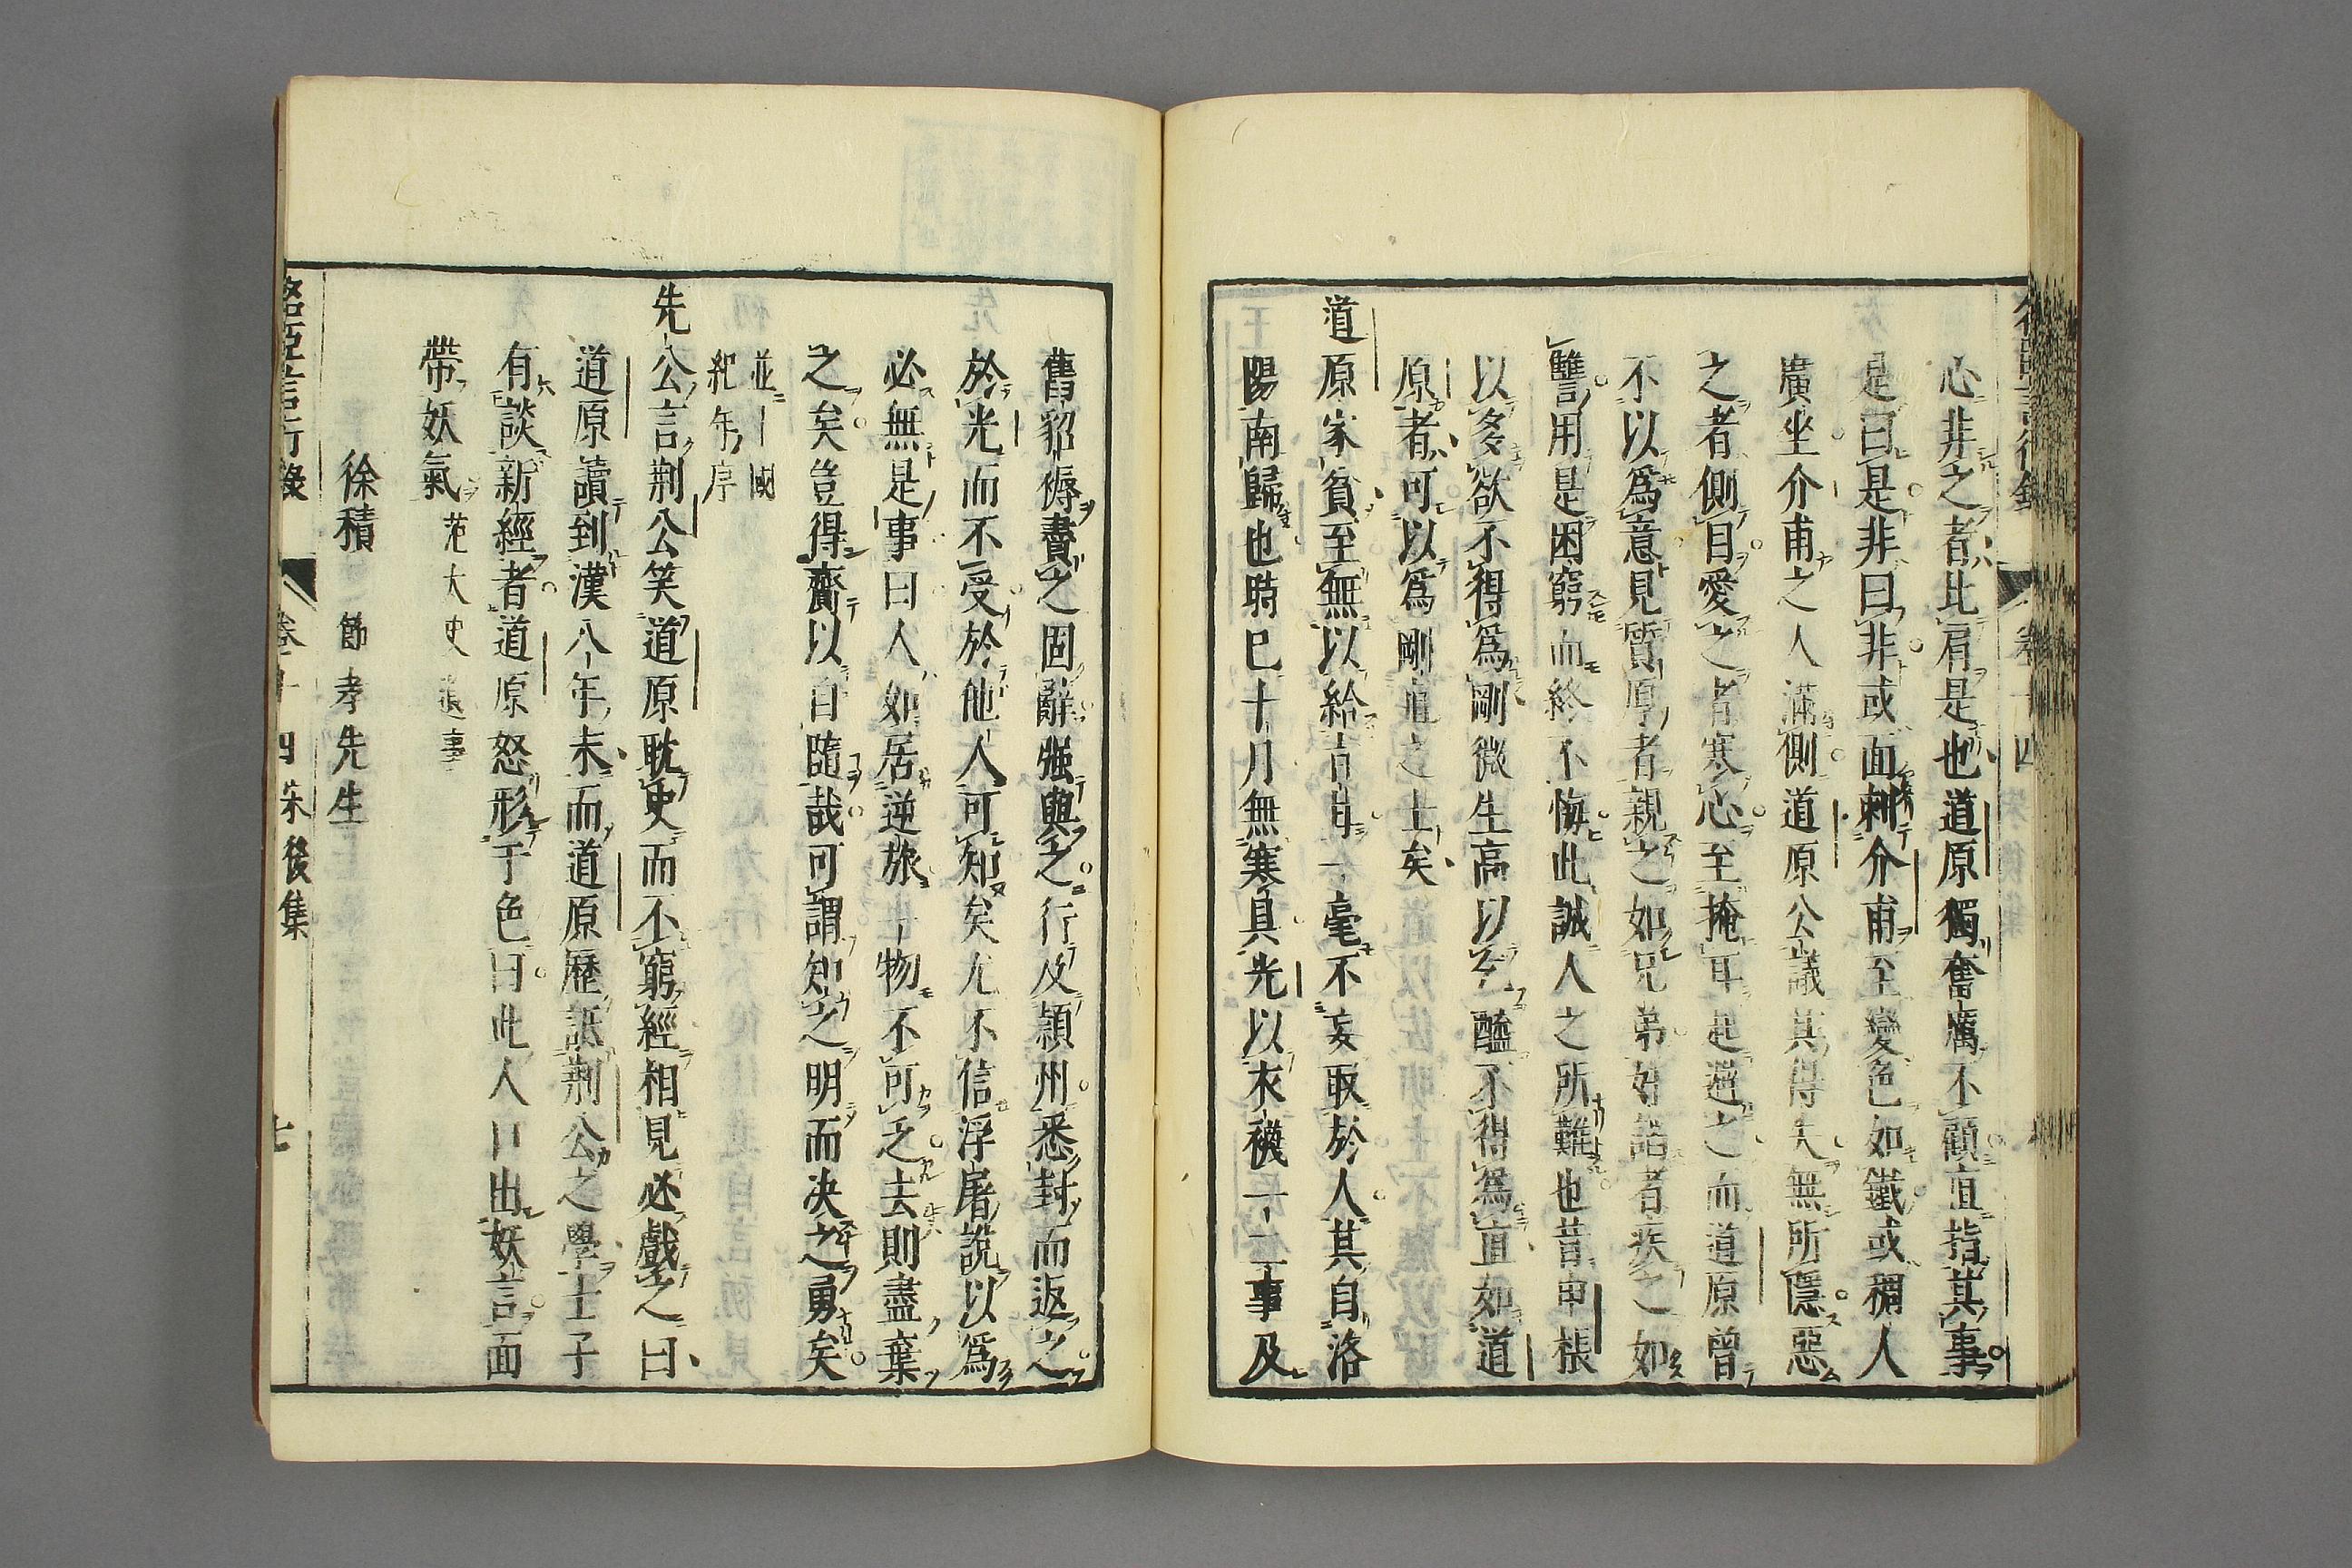 心非之者比肩是也道原獨奮厲不顧直指其事
是曰是非曰非或面刺介甫至變色如鐵或稠人
廣坐介甫之人滿側道原公議其得失無所隱惡
之者側目愛之者寒心至掩耳起避之而道原曾
不以爲意見質厚者親之如兄弟姧諂者疾之如
讐用是困窮而終不悔此誠人之所難也昔申棖
以多欲不得爲剛微生高以乞醯不得爲直如道
原者可以爲剛直之士矣
道原家貧至無以給旨甘一毫不妄取於人其自洛
陽南歸也時已十月無寒具光以衣襪一二事及
舊貂褥賮之固辭强與之行及頴州悉封而返之
於光而不受於他人可知矣尤不信浮屠說以爲
必無是事曰人如居逆旅一物不可乏去則盡棄
之矣豈得齎以自隨哉可謂知之明而决之勇矣
並國
紀年序
先公言荆公笑道原耽史而不窮經相見必戲之曰
道原讀到漢八年未而道原歷詆荆公之學士子
有談新經者道原怒形于色曰此人口出妖言面
帶妖氣 范太史遺事
徐積 節孝先生
名臣言行錄 卷十四 宋後集 七